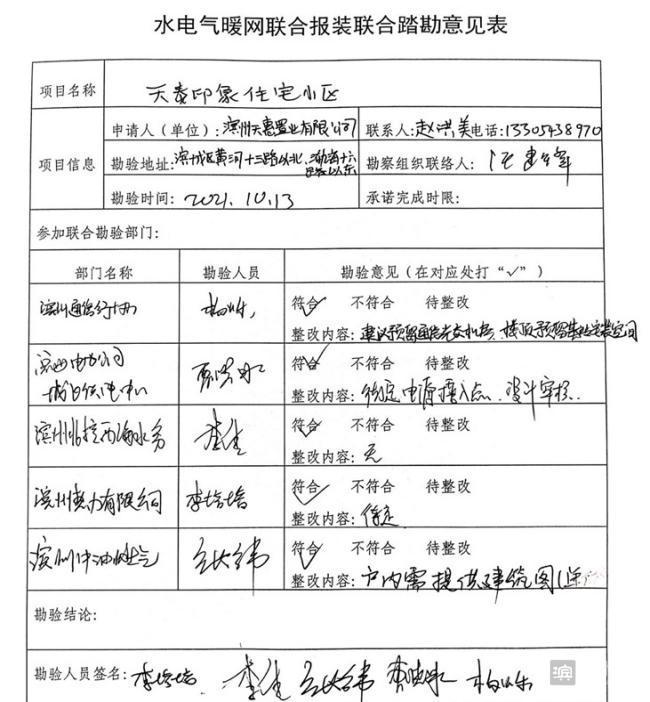 水电气暖网联合报装联合踏勘意见表
项目名称 天泰印象住宅小区
项目信息
申请人（单位）：滨州天惠置业有限公司 联系人：赵洪美 电话：13305438970
勘验地址：滨城区黄河十三路以北、渤海十六路以东 勘察组织联络人：
勘验时间：2021.10.13 承诺完成时限：
参加联合勘验部门：
部门名称 勘验人员 勘验意见（在对应处打“√”）
滨州通信行协办
符合 √ 不符合 待整改
整改内容：建议预留通信光交机房、楼顶预留基站安装空间
符合 √ 不符合 待整改
整改内容：待定电源接入点、设计审核.
李生
符合 √ 不符合 待整改
整改内容：无
滨州热力有限公司 李培培
符合 √ 不符合 待整改
整改内容：
滨州中油燃气
符合 √ 不符合 待整改
整改内容：户内需提供建筑图
勘验结论：
勘验人员签名：李培培 李生
滨